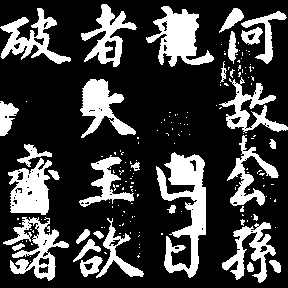 何故公孫
龍曰日
者大王欲
破齊諸